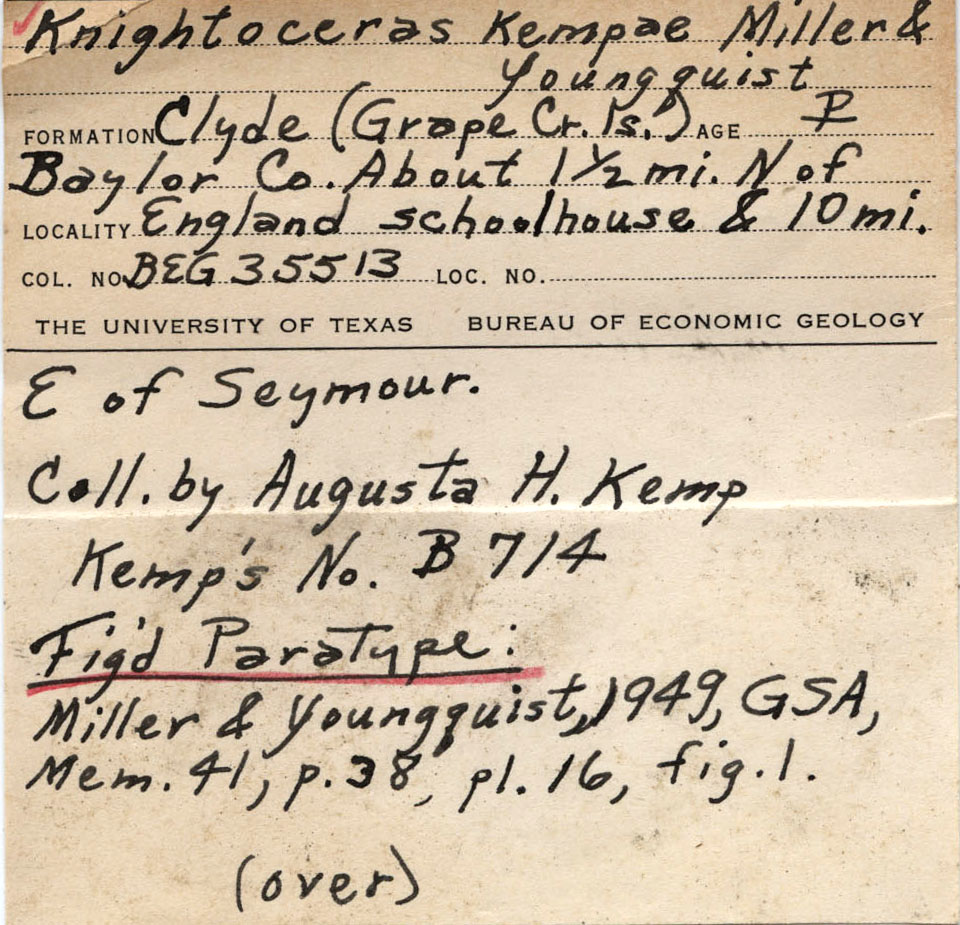 Knightoceras Kempae Miller &
Youngquist
FORMATION Clyde (Grape Cr. ls.) AGE P
Baylor Co. About 1½ mi. N of
LOCALITY England schoolhouse & 10 mi.
COL. NO. BEG 35513 LOC. NO.
THE UNIVERSITY OF TEXAS BUREAU OF ECONOMIC GEOLOGY
E of Seymour.
Coll. by Augusta H. Kemp
Kemp's No. B 714
Fig'd Paratype:
Miller & Youngquist, 1949, GSA,
Mem. 41, p. 38, pl. 16, fig. 1.
(over)